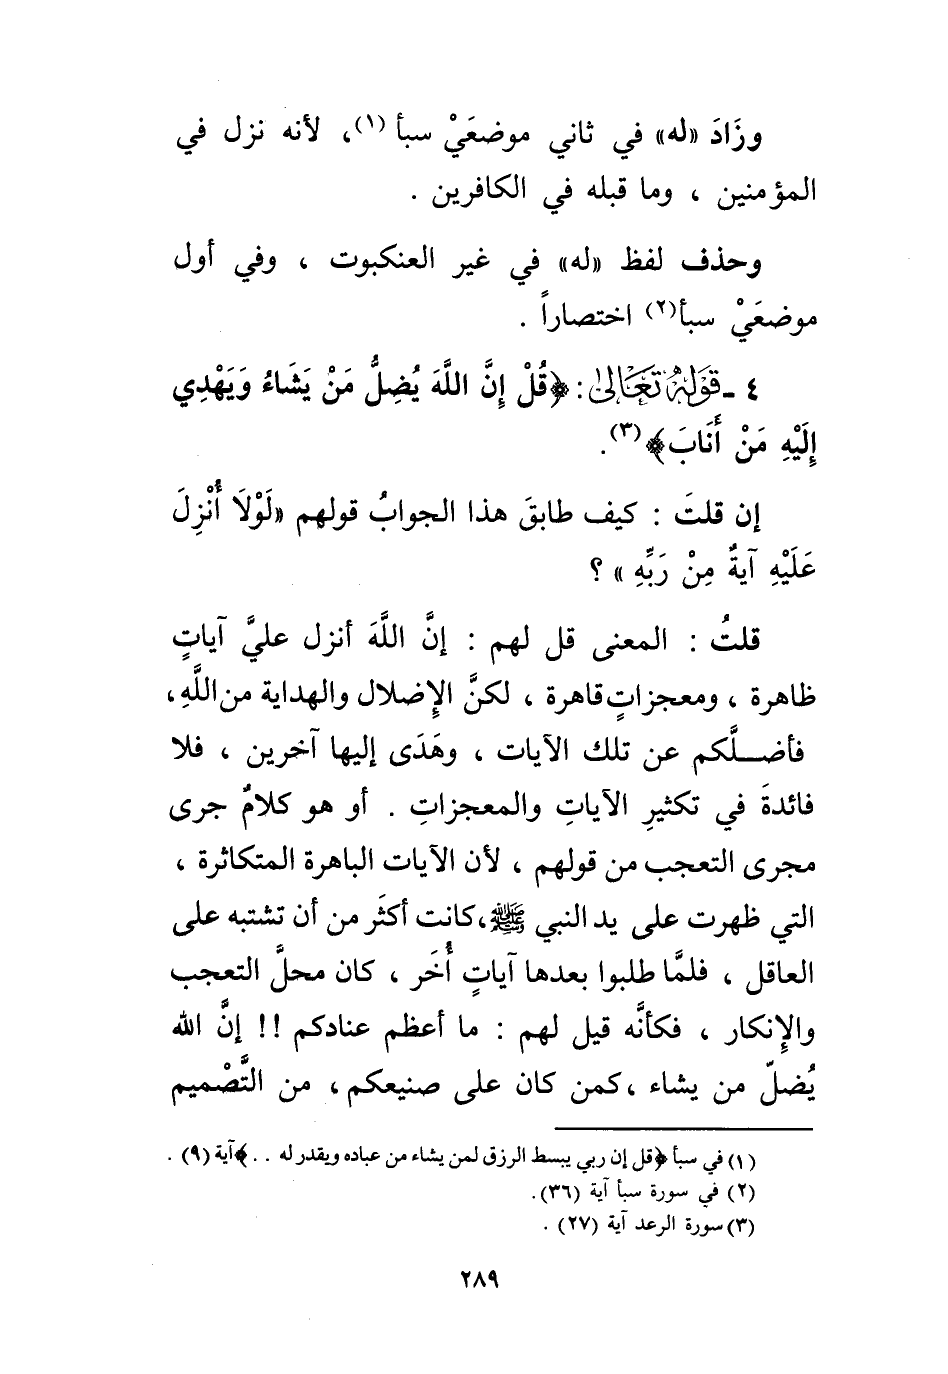 وزَادَ «له» في ثاني موضعَيْ سبأ (١)، لأنه نزل في
المؤمنين ، وما قبله في الكافرين .
وحذف لفظ «له» في غير العنكبوت ، وفي أول
موضعَيْ سبأ(٢) اختصاراً .
٤ ـ قَوْلُهُ تَعَالَىٰ: ﴿قُلْ إِنَّ اللَّهَ يُضِلُّ مَنْ يَشَاءُ وَيَهْدِي
إِلَيْهِ مَنْ أَنَابَ﴾(٣).
إن قلتَ : كيف طابقَ هذا الجوابُ قولهم «لَوْلَا أُنْزِلَ
عَلَيْهِ آيةٌ مِنْ رَبِّهِ » ؟
قلتُ : المعنى قل لهم : إنَّ اللَّهَ أنزل عليَّ آياتٍ
ظاهرة ، ومعجزاتٍ قاهرة ، لكنَّ الإِضلال والهداية من اللَّهِ،
فأضـــلَّكم عن تلك الآيات ، وهَدَى إليها آخرين ، فلا
فائدةَ في تكثيرِ الآياتِ والمعجزاتِ . أو هو كلامٌ جرى
مجرى التعجب من قولهم ، لأن الآيات الباهرة المتكاثرة ،
التي ظهرت على يد النبي ﷺ،كانت أكثَر من أن تشتبه على
العاقل ، فلمَّا طلبوا بعدها آياتٍ أُخَر ، كان محلَّ التعجب
والإِنكار ، فكأنَّه قيل لهم : ما أعظم عنادكم !! إنَّ الله
يُضلّ من يشاء ،كمن كان على صنيعكم، من التَّصْميم
(١) في سبأ ﴿قل إن ربي يبسط الرزق لمن يشاء من عباده ويقدر له . .﴾ آية (٩) .
(٢) في سورة سبأ آية (٣٦).
(٣) سورة الرعد آية (٢٧) .
٢٨٩